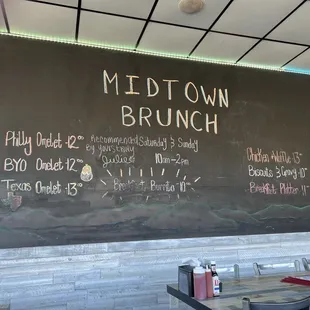 MIDTOWN
BRUNCH
Philly Omlet - 12.00
BYO Omlet - 12.00
Texas Omlet - 13.00
Recommended Saturday & Sunday
By your
10am-2pm
Breakfast Burrito - 10.00
Chicken & Waffle 13
Biscuits & Gravy - 10
Breakfast Platter - 11